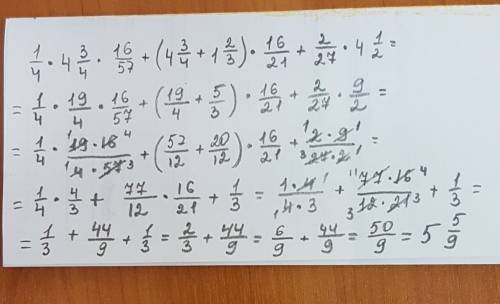 1/4 · 4 3/4 · 16/57 + (4 3/4 + 1 2/3) · 16/21 + 2/27 · 4 1/2 =
= 1/4 · 19/4 · 16/57 + (19/4 + 5/3) · 16/21 + 2/27 · 9/2 =
= 1/4 · ¹19·16⁴/₁4·57₃ + (57/12 + 20/12) · 16/21 + ¹2·9¹/₃27·2₁ =
= 1/4 · 4/3 + 77/12 · 16/21 + 1/3 = 1·4¹/₁4·3 + ¹¹77·16⁴/₃12·21₃ + 1/3 =
= 1/3 + 44/9 + 1/3 = 2/3 + 44/9 = 6/9 + 44/9 = 50/9 = 5 5/9